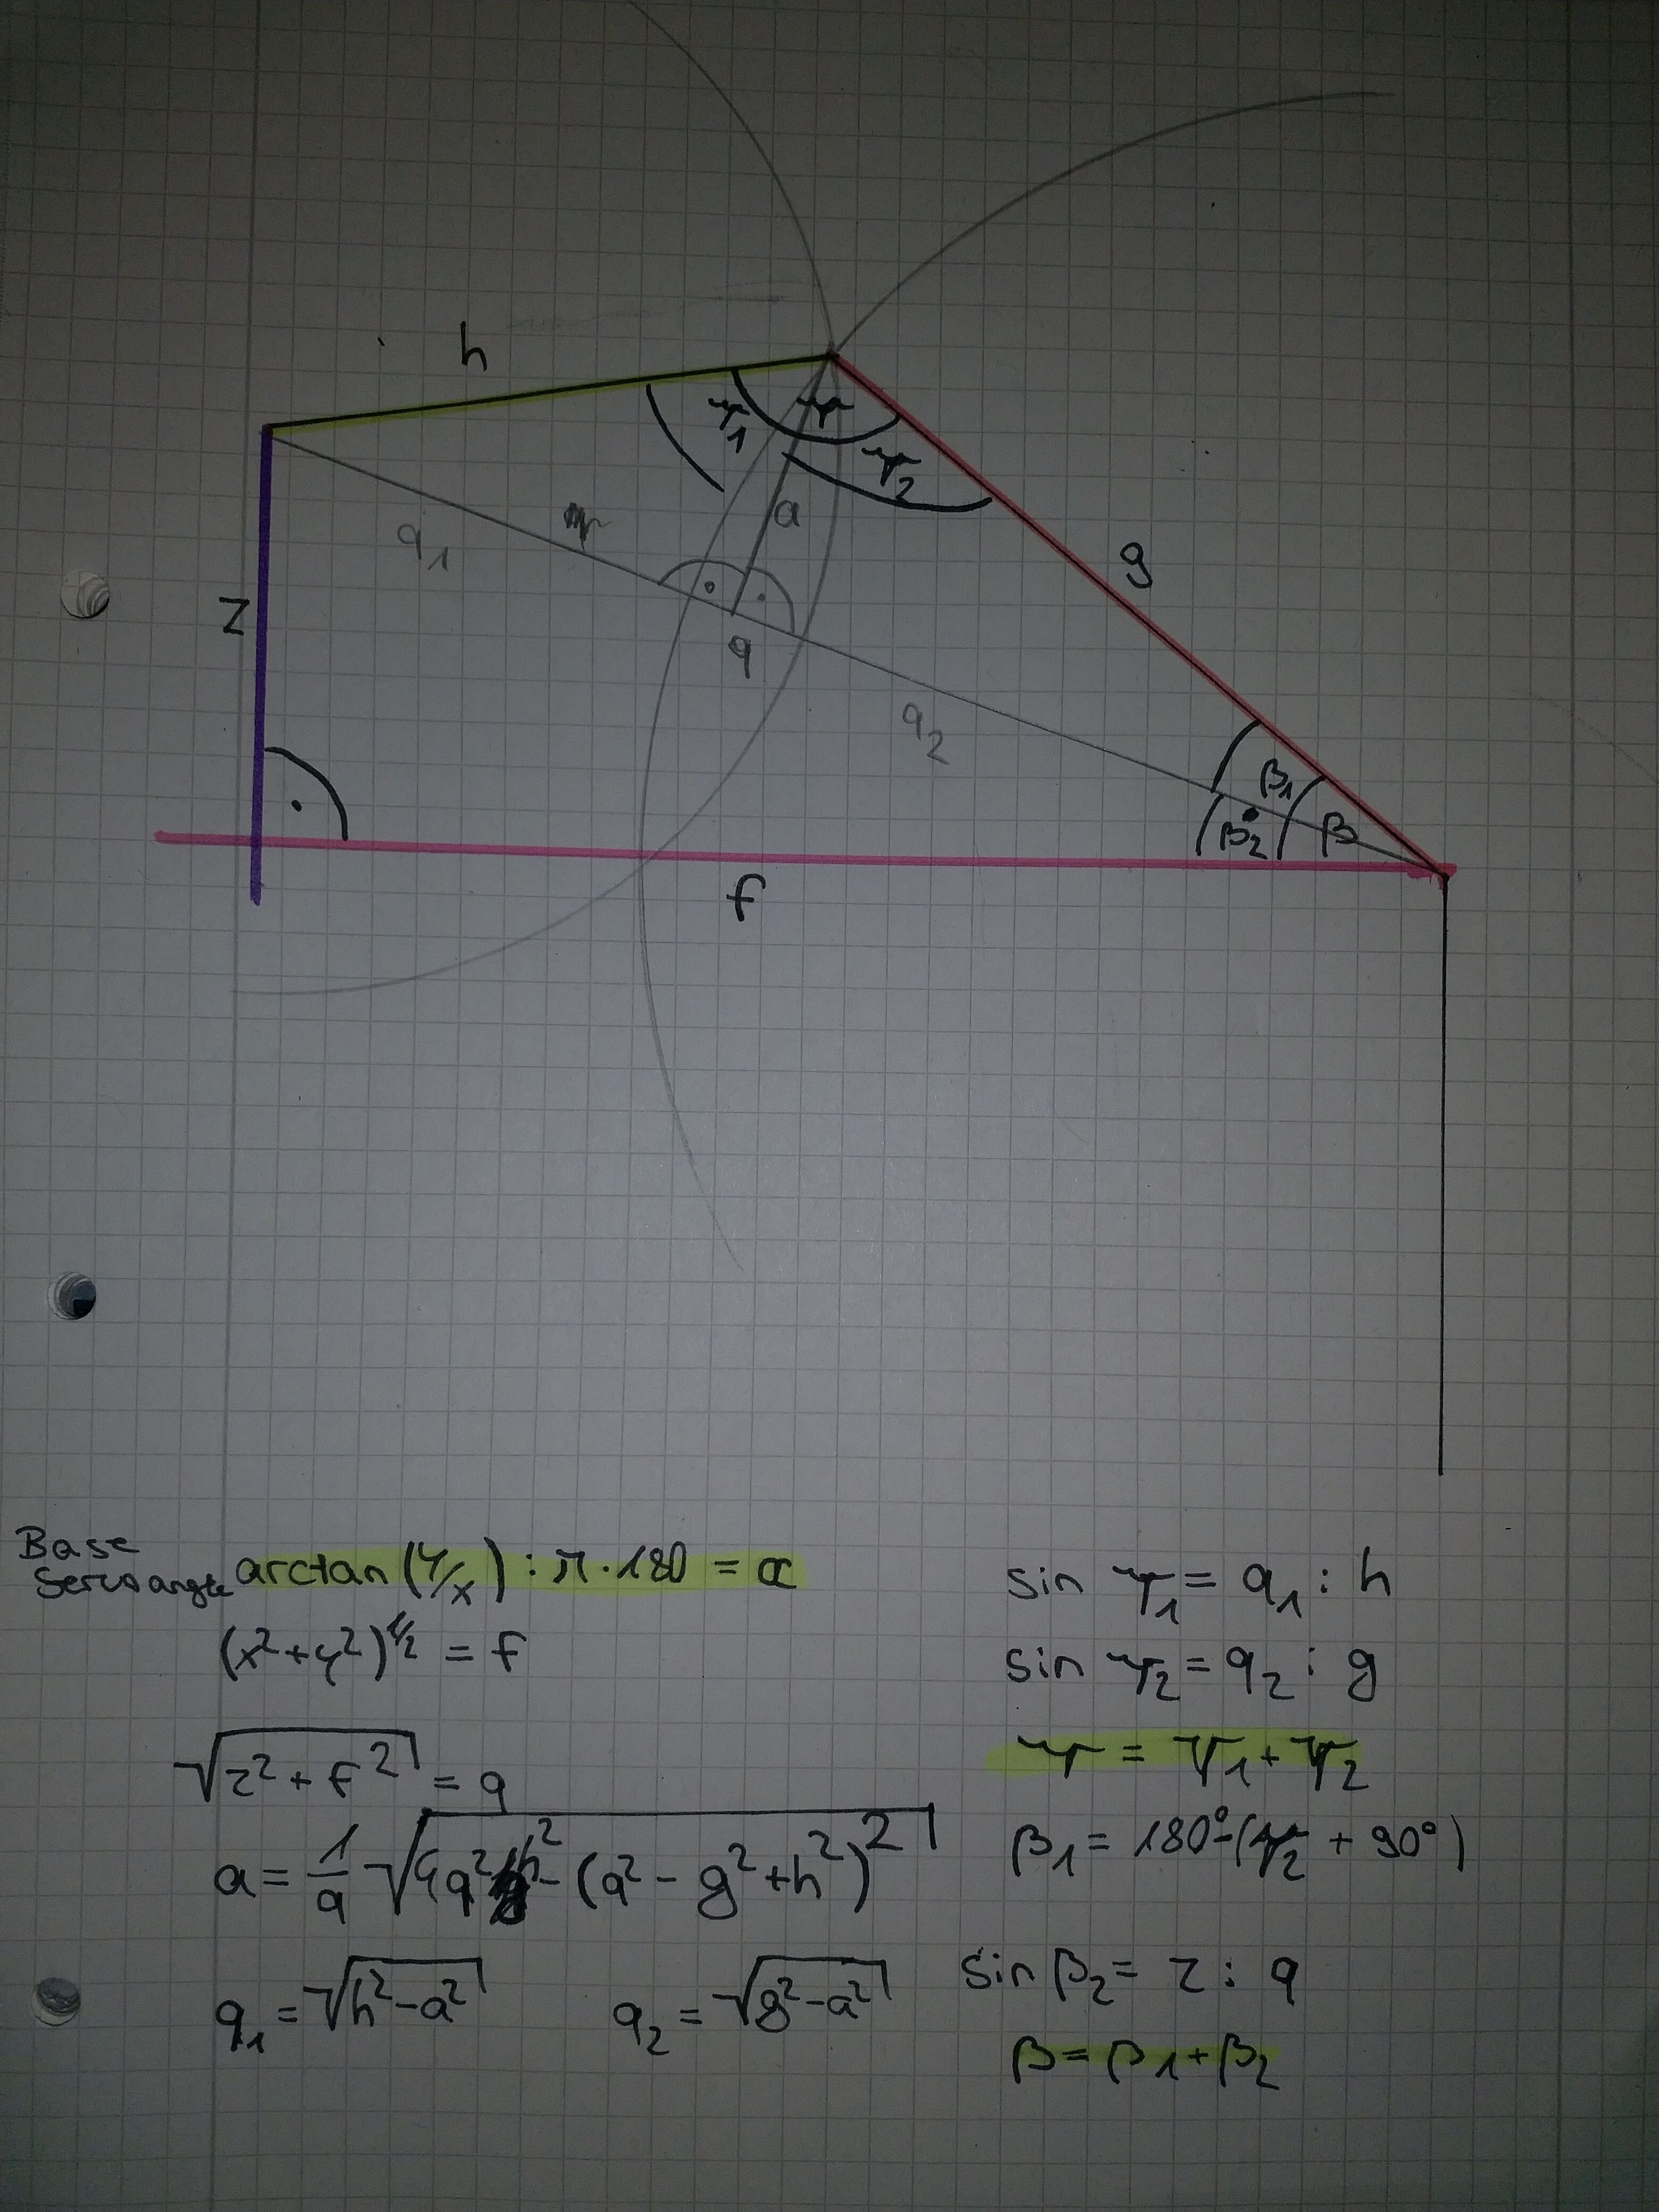 h
γ1
γ
γ2
a
q1
g
z
q
q2
β1
β2
β
f
Base
Servoangle arctan(y/x) : π · 180 = α
(x² + y²)^1/2 = f
√z² + f² = q
a = 1/q √4q²h² - (q² - g² + h²)²
q1 = √h² - a²
q2 = √g² - a²
sin γ1 = q1 : h
sin γ2 = q2 : g
γ = γ1 + γ2
β1 = 180° - (γ2 + 90°)
sin β2 = z : q
β = β1 + β2